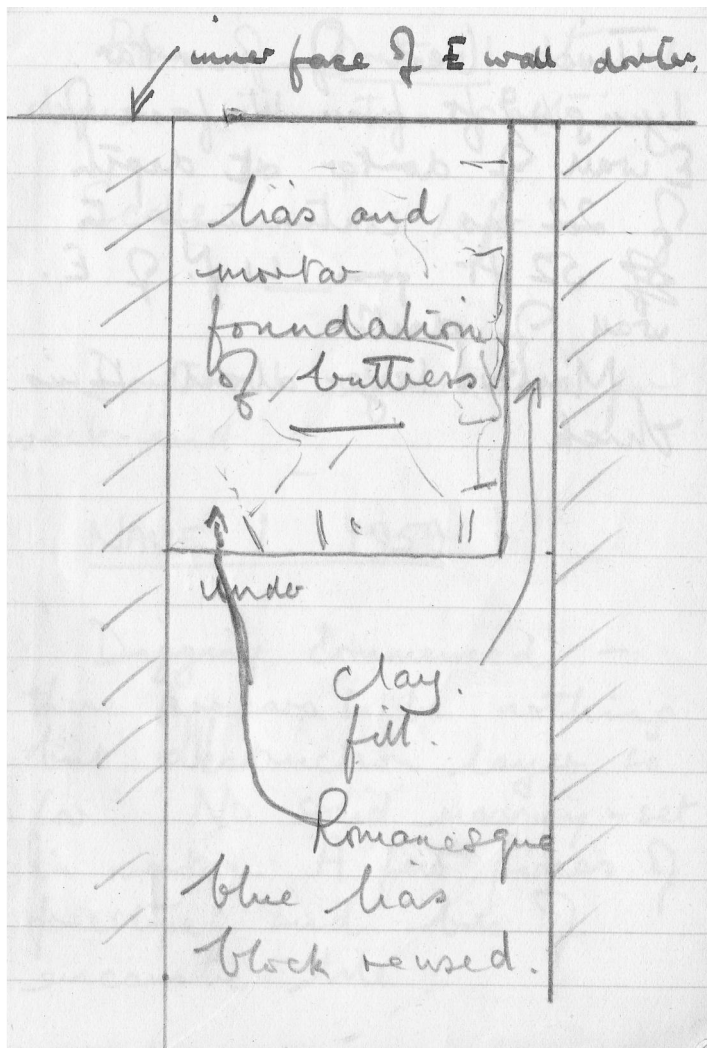 inner face of E wall dorter.
lias and
mortar
foundation
of buttress
under
clay.
fill.
Romanesque
blue lias
block reused.